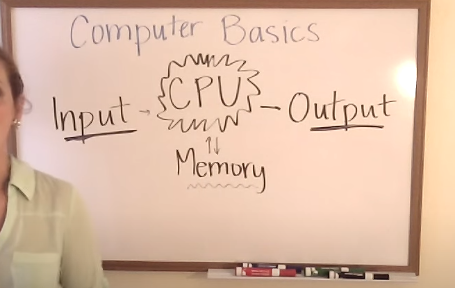 Computer Basics
Input - CPU - Output
↑↓
Memory